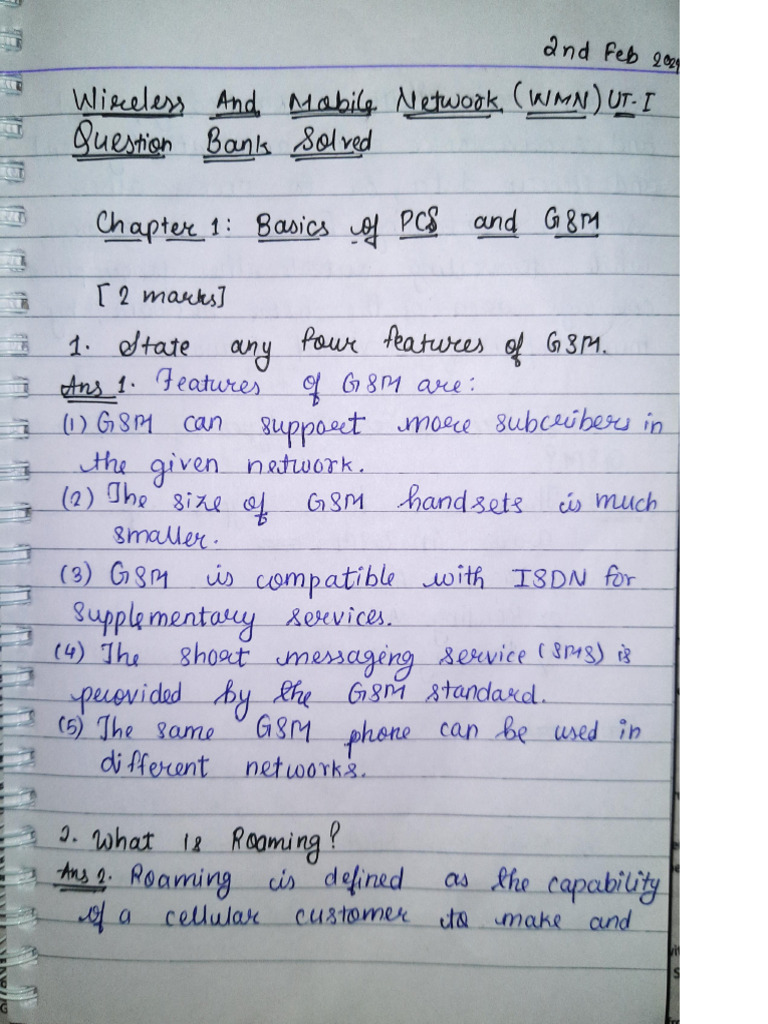 2nd Feb 2024
Wireless And Mobile Network (WMN) UT-I
Question Bank Solved
Chapter 1: Basics of PCS and GSM
[2 marks]
1. State any four features of GSM.
Ans 1. Features of GSM are:
(1) GSM can support more subcribers in
the given network.
(2) The size of GSM handsets is much
smaller.
(3) GSM is compatible with ISDN for
supplementary services.
(4) The short messaging service (SMS) is
provided by the GSM standard.
(5) The same GSM phone can be used in
different networks.
2. What is Roaming?
Ans 2. Roaming is defined as the capability
of a cellular customer to make and